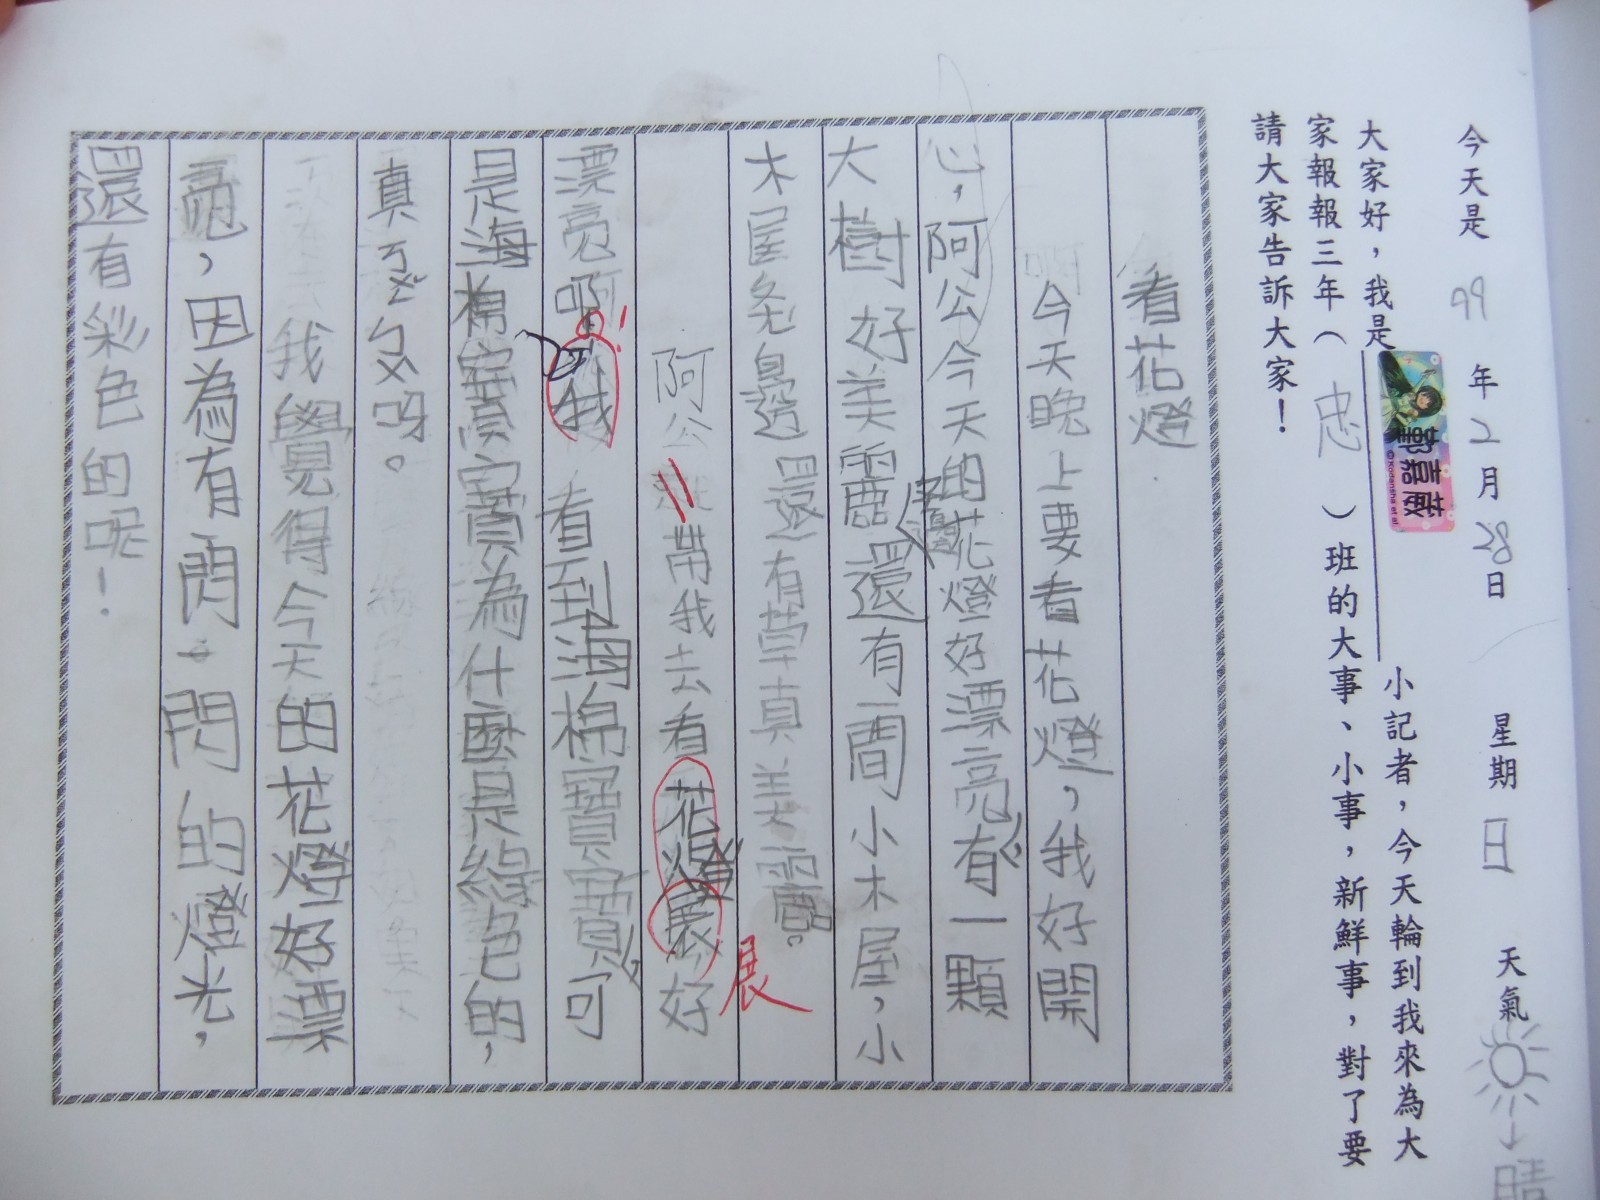 今天是 99 年 2 月 28 日 星期 日 天氣 晴
大家好，我是 郭嘉葳 小記者，今天輪到我來為大
家報報三年（ 忠 ）班的大事、小事，新鮮事，對了要
請大家告訴大家！
看花燈
今天晚上要看花燈，我好開
心，阿公今天的花燈好漂亮，有一顆
大樹好美麗還有一間小木屋，小
木屋旁邊還有草真美麗。
阿公帶我去看花燈展好
展
漂亮啊！我看到海棉寶寶，可
是海棉寶寶為什麼是綠色的，
真ㄎㄜˇㄅㄨˋ呀。
我覺得今天的花燈好漂
亮，因為有閃一閃的燈光，
還有彩色的呢！